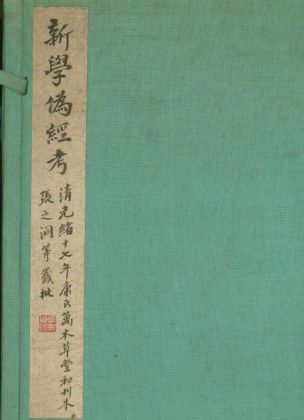 新學偽經考
清光緒十七年康氏萬木草堂初刊本
張之洞等籤批